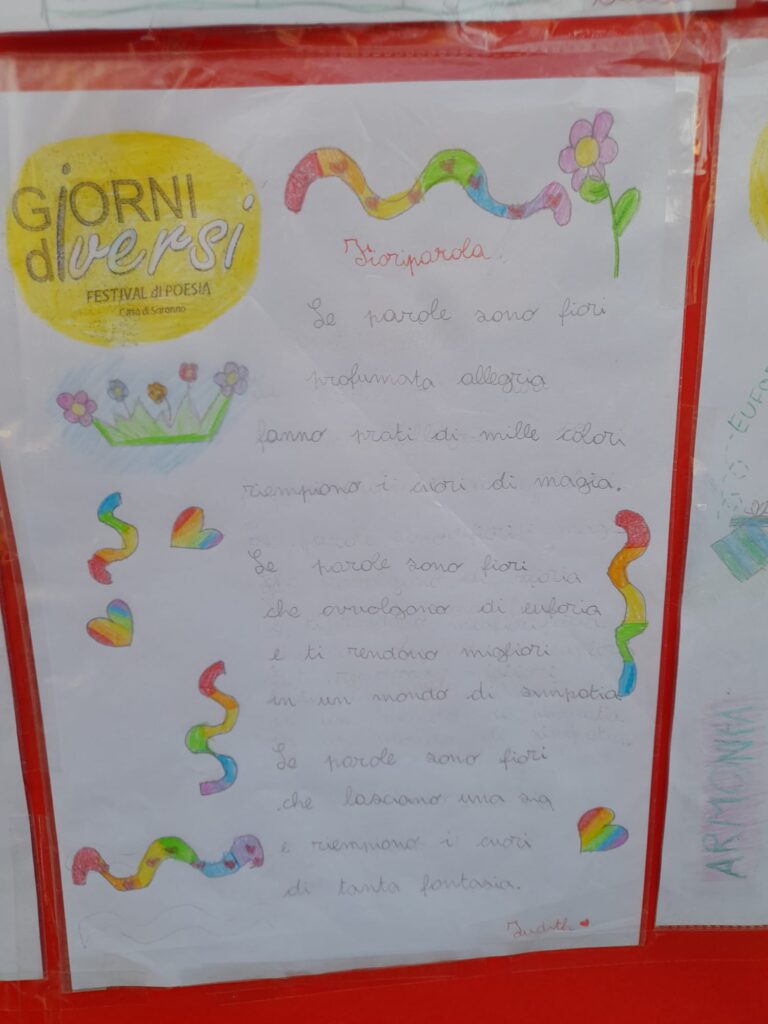 GiORNI
diversi
FESTIVAL di POESIA
Casa di Saronno
Fioriparola.
Le parole sono fiori
profumata allegria
fanno prati di mille colori
riempiono i cuori di magia.
Le parole sono fiori
che avvolgono di euforia
e ti rendono migliori
in un mondo di simpatia
Le parole sono fiori
che lasciano una
e riempiono i cuori
di tanta fantasia.
Judith
EUFOR
ARMONIA